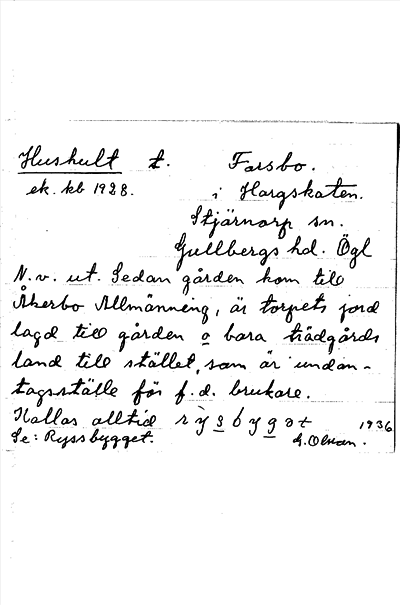 Hushult t. Farsbo.
ek. kb 1928. i Hargskaten.
Stjärnorp sn.
Gullbergs hd. Ögl
N.v. ut. Sedan gården kom till
Åkerbo Allmänning, är torpets jord
lagd till gården o bara trädgårds
land till stället, som är undan-
tagsställe för f.d. brukare.
Kallas alltid rỳsbygət 1936
Se: Ryssbygget. G. Olsson.